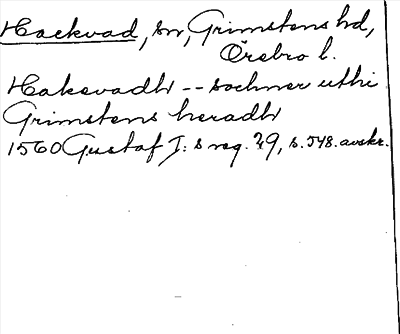 Hackvad, sn, Grimstens hd,
Örebro l.
Hakevadh -- sochner uthi
Grimstens heradh
1560 Gustaf I:s reg. 29, s. 548. avskr.